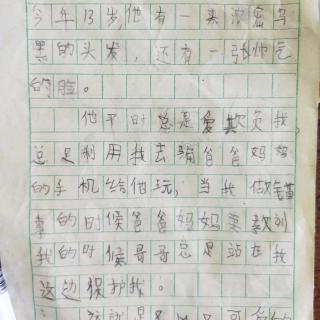 今年13岁他有一头浓密乌
黑的头发，还有一张帅气
的脸。
他平时总是爱欺负我，
总是利用我去骗爸爸妈妈
的手机给他玩，当我做错
事的时候爸爸妈妈要教训
我的时候哥哥总是站在我
这边保护我。
这就是